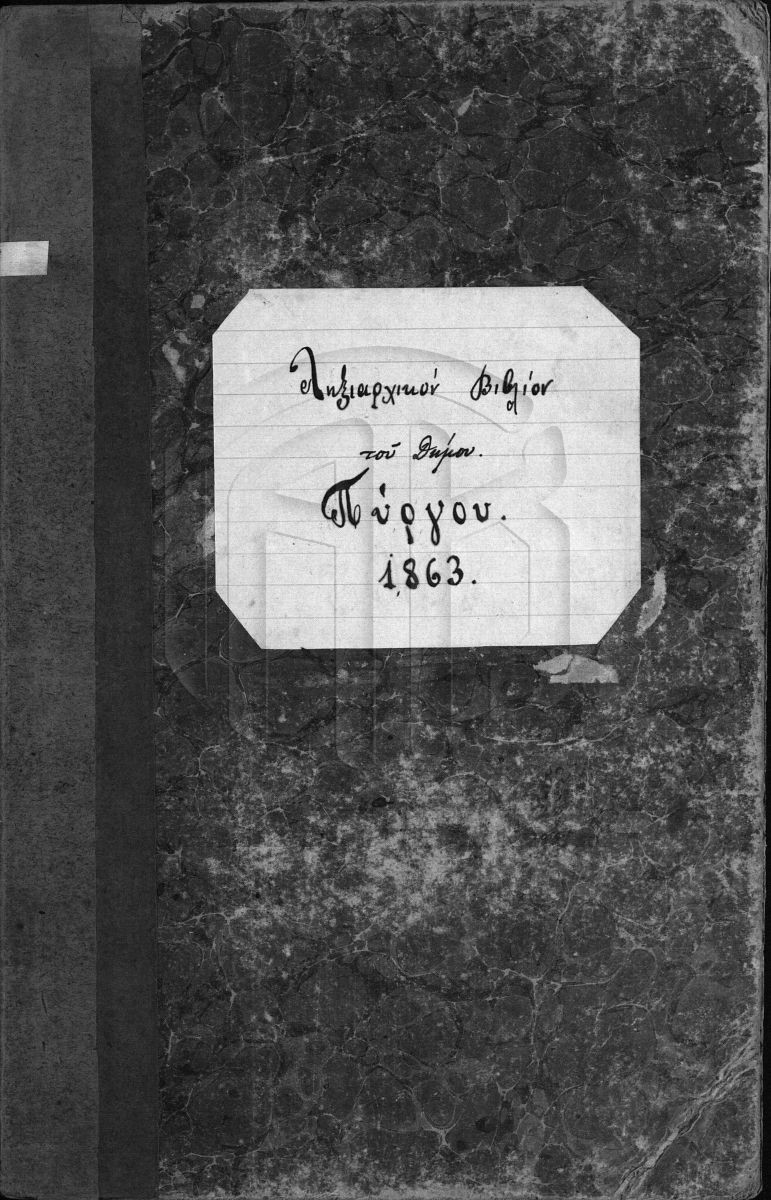 Ληξιαρχικόν Βιβλίον
τοῦ Δήμου.
Πύργου.
1863.